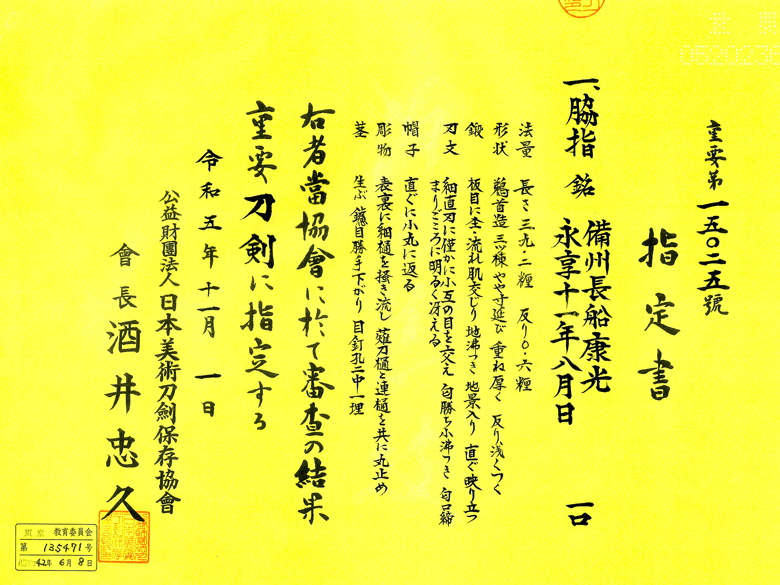 重要第一五〇二五號
指定書
一、脇指 銘 備州長船康光
永享十一年八月日 一口
法量 長さ三九・二糎 反り〇・六糎
形状 鵜首造 三ツ棟 やや寸延び 重ね厚く 反り浅くつく
鍛 板目に杢・流れ肌交じり 地沸つき 地景入り 直ぐ映り立つ
刃文 細直刃に僅かに小互の目を交え 匂勝ち小沸つき 匂口締
まりごころに明るく冴える
帽子 直ぐに小丸に返る
彫物 表裏に細樋を掻き流し 薙刀樋と連樋を共に丸止め
茎 生ぶ 鑢目勝手下がり 目釘孔二中一埋
右者當協會に於て審査の結果
重要刀剣に指定する
令和五年十一月一日
公益財團法人日本美術刀劍保存協會
會長 酒井忠久
東京 教育委員会
第 135471 号
昭和42年6月8日